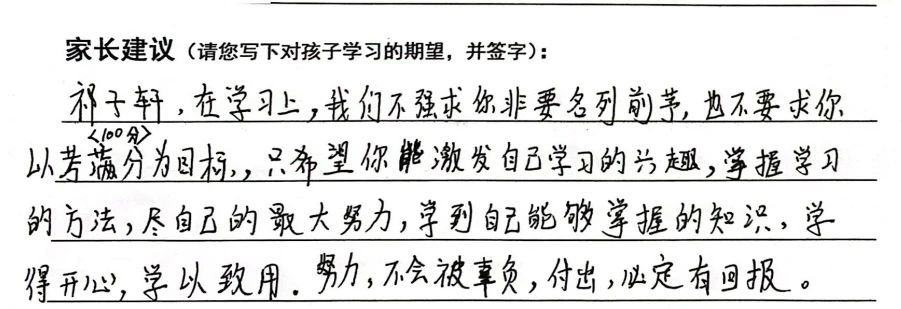 家长建议（请您写下对孩子学习的期望，并签字）：
祁子轩，在学习上，我们不强求你非要名列前茅，也不要求你
<100分>
以考满分为目标，，只希望你能激发自己学习的兴趣，掌握学习
的方法，尽自己的最大努力，学到自己能够掌握的知识，学
得开心，学以致用．努力，不会被辜负，付出，必定有回报。